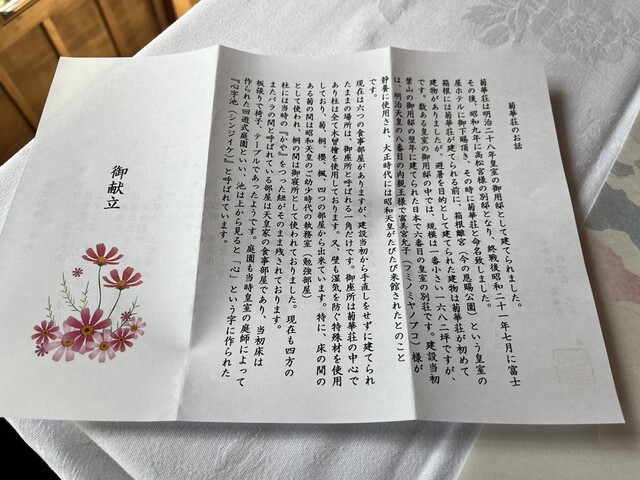 菊華荘のお話
菊華荘は明治二十八年皇室の御用邸として建てられました。
その後、昭和九年に高松宮様の別邸となり、終戦後昭和二十一年七月に富士
屋ホテルに御下賜頂き、その時に菊華荘と命名致しました。
箱根には菊華荘が建てられる前に、箱根離宮（今の恩賜公園）という皇室の
建物がありましたが、避暑を目的として建てられた建物は菊華荘が初めて
です。数ある皇室の御用邸の中では、規模は一番小さい一六八二坪ですが、
葉山の御用邸の翌年に建てられた日本で六番目の皇室の別荘です。建設当初
は、明治天皇の八番目の内親王様で富美宮允子（フミノミヤノブコ）様が
静養に使用され、大正時代には昭和天皇がたびたび来館されたとのこと
です。
現在は六つの食事部屋がありますが、建設当初から手直しをせずに建てられ
たままの場所は、御座所と呼ばれる一角だけです。御座所は菊華荘の中心で
あり柱は全て木曽檜を使用しております。又、壁も湿気を防ぐ特殊材を使用
しており、菊、桐、櫻、楓、四つの部屋から出来ています。特に、床の間の
ある菊の間は昭和天皇のご幼少時代の執務室（勉強部屋）
として使われ、桐の間は御寝所として使われておりました。現在も四方の
柱には当時の『かや』をつった紐がそのまま残されております。
またバラの間と呼ばれている部屋は天皇家の食事部屋であり、当初床は
板張りで椅子、テーブルであったようです。庭園も当時皇室の庭師によって
作られた回遊式庭園といい、池は上から見ると「心」という字に作られた
『心字池（シンジイケ）』と呼ばれています。
御献立